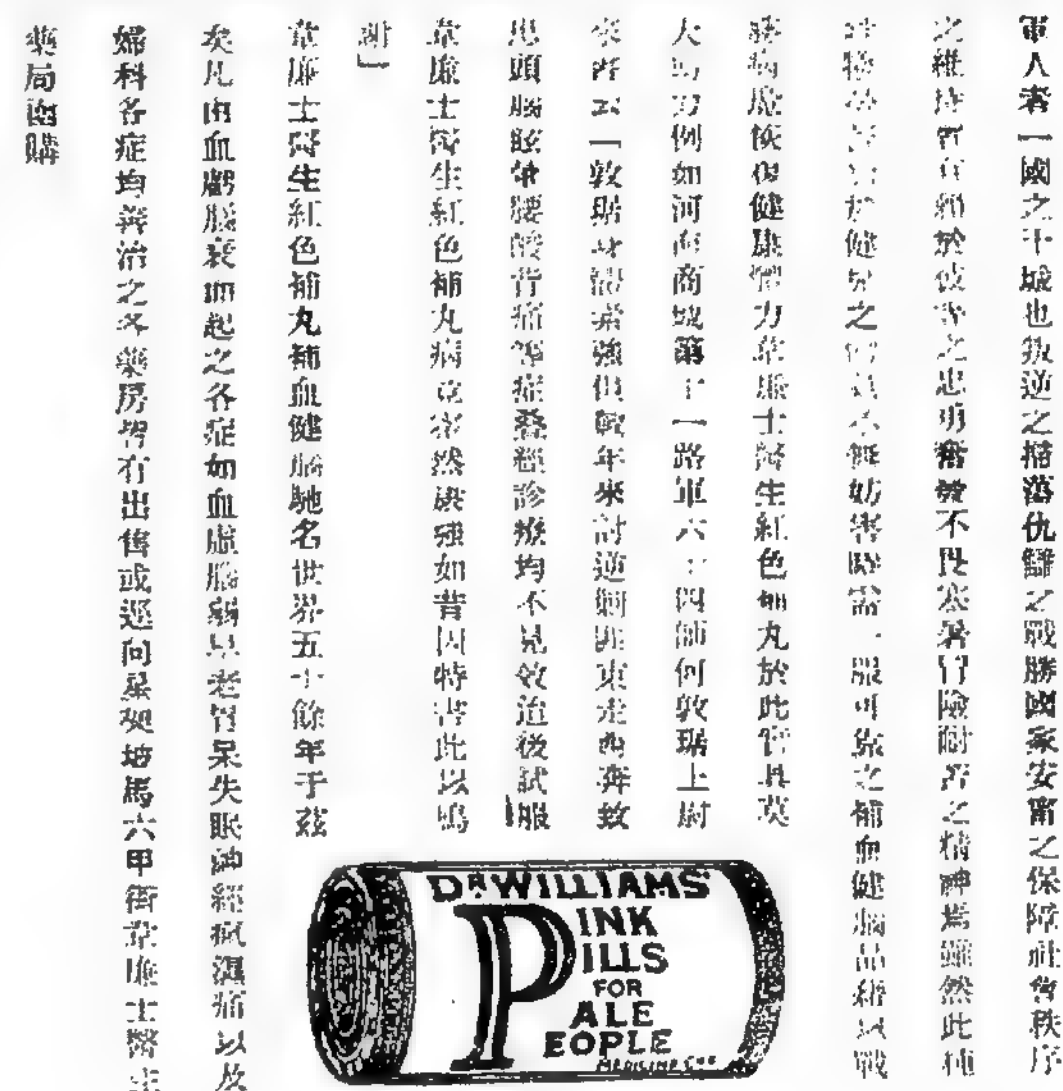 軍人者一國之干城也叛逆之掃蕩仇讎之戰勝國家安甯之保障社會秩序
之維持皆有賴於彼等之忠勇奮發不畏寒暑冒險耐苦之精神焉雖然此種
於健身之不無妨害時需服可靠之補血健腦品藉以戰
勝病魔恢復健康體力韋廉士醫生紅色補丸於此皆具莫
大功力例如河南商城第十一路軍六十四師何敦琚上尉
來者云「敦琚身體素強但數年來討逆剿匪東走西奔致
患頭腦眩暈腰酸背痛等症叠經診療均不見效迨後試服
韋廉士醫生紅色補丸病竟霍然康強如昔因特書此以鳴
謝」
韋廉士醫生紅色補丸補血健腦馳名世界五十餘年于茲
矣凡由血虧腦衰而起之各症如血虛腦弱早老胃呆失眠神經瘋濕痛以及
婦科各症均善治之各藥房皆有出售或逕向星架坡馬六甲街韋廉士醫生
藥局函購
DR WILLIAMS'
PINK
PILLS
FOR
PALE
PEOPLE
MEDICINE Co